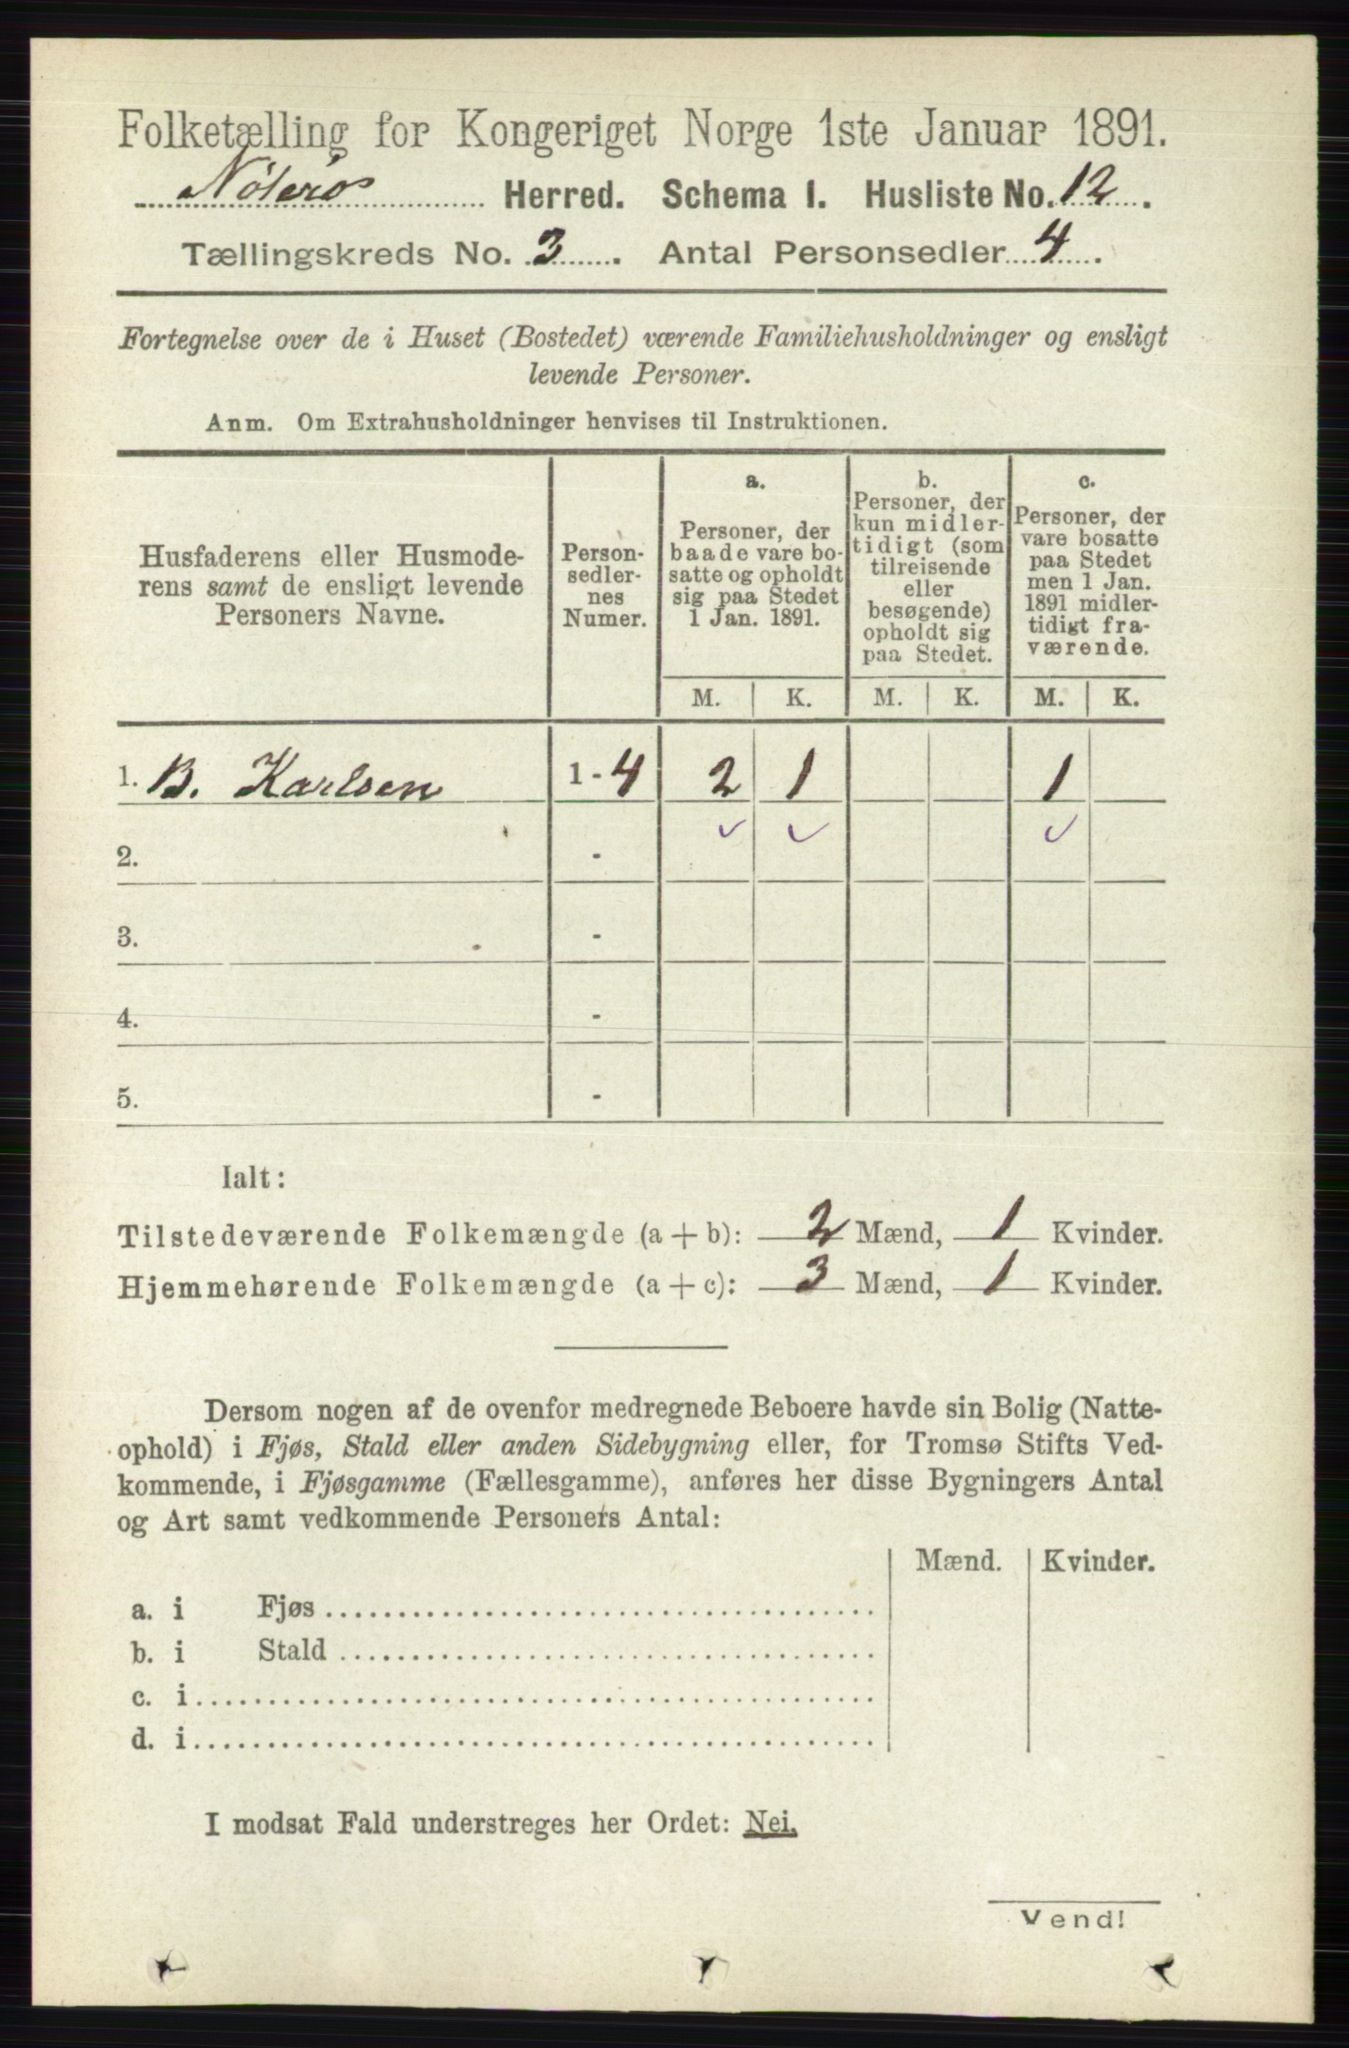 Folketælling for Kongeriget Norge 1ste Januar 1891.
Nøterø Herred. Schema I. Husliste No. 12.
Tællingskreds No. 3. Antal Personsedler 4.
Fortegnelse over de i Huset (Bostedet) værende Familiehusholdninger og ensligt
levende Personer.
Anm. Om Extrahusholdninger henvises til Instruktionen.
Husfaderens eller Husmode-
rens samt de ensligt levende
Personers Navne.
Person-
sedler-
nes
Numer.
a.
Personer, der
baade vare bo-
satte og opholdt
sig paa Stedet
1 Jan. 1891.
b.
Personer, der
kun midler-
tidigt (som
tilreisende
eller
besøgende)
opholdt sig
paa Stedet.
c.
Personer, der
vare bosatte
paa Stedet
men 1 Jan.
1891 midler-
tidigt fra-
værende.
M. K. M. K. M. K.
1. B. Karlsen 1 - 4 2 1 1
2. -
3. -
4. -
5. -
Ialt:
Tilstedeværende Folkemængde (a + b): 2 Mænd, 1 Kvinder.
Hjemmehørende Folkemængde (a + c): 3 Mænd, 1 Kvinder.
Dersom nogen af de ovenfor medregnede Beboere havde sin Bolig (Natte-
ophold) i Fjøs, Stald eller anden Sidebygning eller, for Tromsø Stifts Ved-
kommende, i Fjøsgamme (Fællesgamme), anføres her disse Bygningers Antal
og Art samt vedkommende Personers Antal:
Mænd. Kvinder.
a. i Fjøs
b. i Stald
c. i
d. i
I modsat Fald understreges her Ordet: Nei.
Vend!